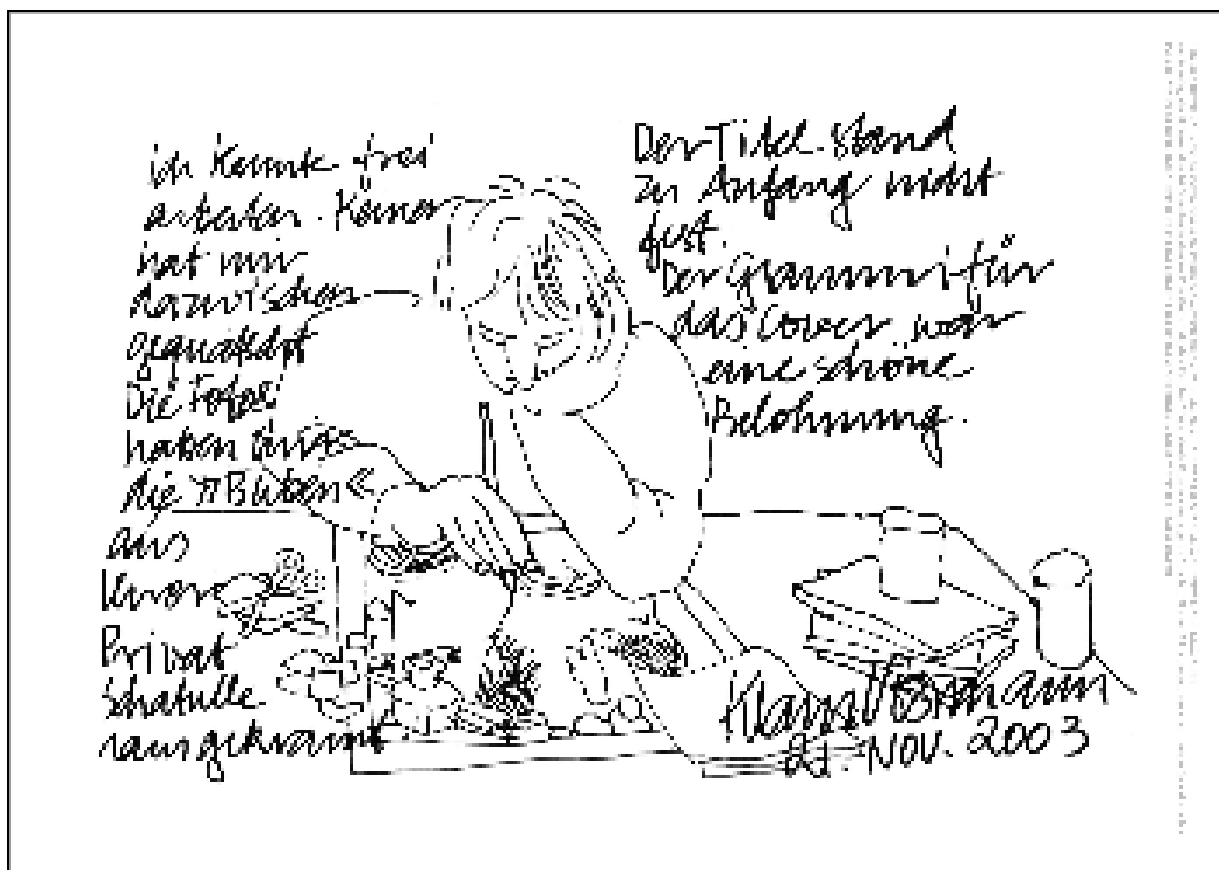 ich konnte frei
arbeiten. Keiner
hat mir
dazwischen
gequatscht
Die Fotos
haben
die "Buben"
aus
Privat
schatulle
rausgekramt
Der Titel stand
zu Anfang nicht
fest.
Der Grammy für
das Cover war
eine schöne
Belohnung.
Klaus Voormann
21. NOV. 2003